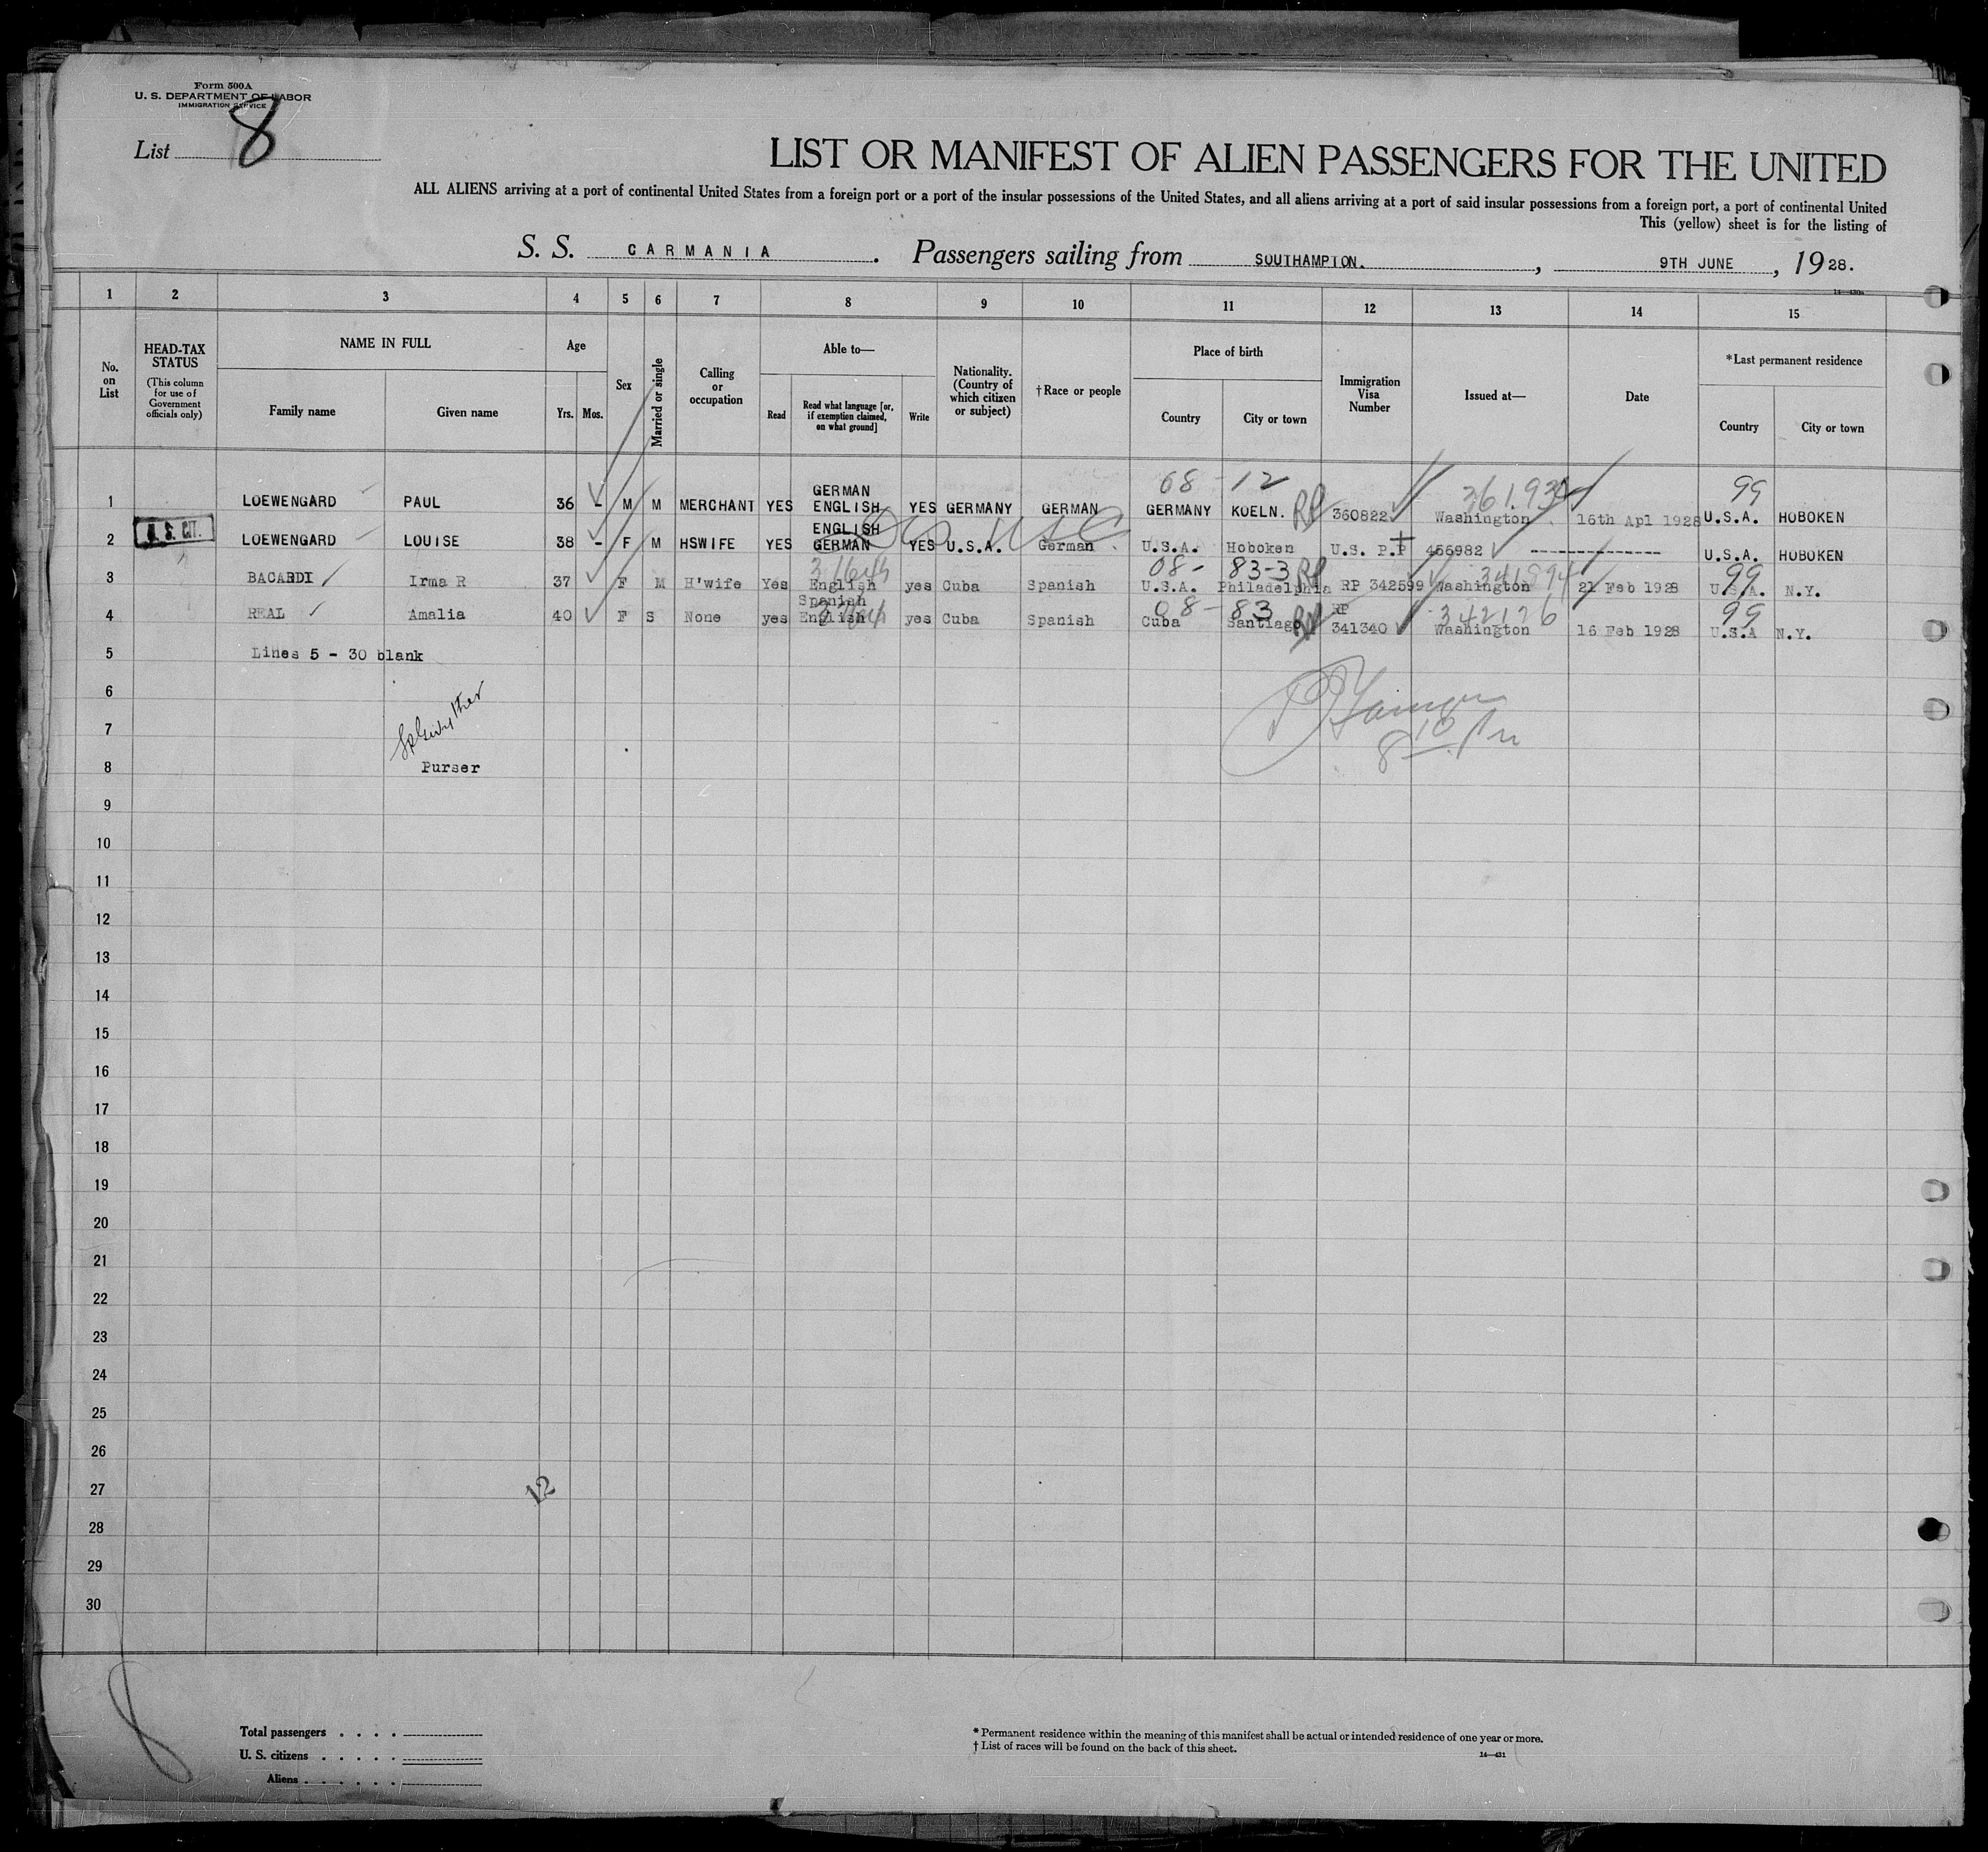 Form 500A
U. S. DEPARTMENT OF LABOR
IMMIGRATION SERVICE
List 8
LIST OR MANIFEST OF ALIEN PASSENGERS FOR THE UNITED
ALL ALIENS arriving at a port of continental United States from a foreign port or a port of the insular possessions of the United States, and all aliens arriving at a port of said insular possessions from a foreign port, a port of continental United
This (yellow) sheet is for the listing of
S. S. CARMANIA. Passengers sailing from SOUTHAMPTON., 9TH JUNE, 1928.
14—430a
1 2 3 4 5 6 7 8 9 10 11 12 13 14 15
No. on List
HEAD-TAX STATUS
(This column for use of Government officials only)
NAME IN FULL
Family name
Given name
Age
Yrs. Mos.
Sex
Married or single
Calling or occupation
Able to—
Read
Read what language [or, if exemption claimed, on what ground]
Write
Nationality. (Country of which citizen or subject)
†Race or people
Place of birth
Country
City or town
Immigration Visa Number
Issued at—
Date
*Last permanent residence
Country
City or town
68 - 12 99
1 LOEWENGARD PAUL 36 - M M MERCHANT YES GERMAN ENGLISH YES GERMANY GERMAN GERMANY KOELN. RP 360822 Washington 16th Apl 1928 U.S.A. HOBOKEN
2 U.S. CIT. LOEWENGARD LOUISE 38 - F M HSWIFE YES ENGLISH GERMAN YES U.S.A. German U.S.A. Hoboken U.S. P.P 456982 -------------- U.S.A. HOBOKEN
USC
08 - 83-3 RP 99
3 BACARDI Irma R 37 F M H'wife Yes English yes Cuba Spanish U.S.A. Philadelphia RP 342599 Washington 21 Feb 1928 U.S.A. N.Y.
08 - 83 RP 342126 99
4 REAL Amalia 40 F S None yes Spanish English yes Cuba Spanish Cuba Santiago RP 341340 Washington 16 Feb 1928 U.S.A N.Y.
5 Lines 5 - 30 blank
6
7
8 Purser
9
10
11
12
13
14
15
16
17
18
19
20
21
22
23
24
25
26
27
12
28
29
30
8
Total passengers . . . .
U. S. citizens . . . . .
Aliens . . . . . .
* Permanent residence within the meaning of this manifest shall be actual or intended residence of one year or more.
† List of races will be found on the back of this sheet.
14—431